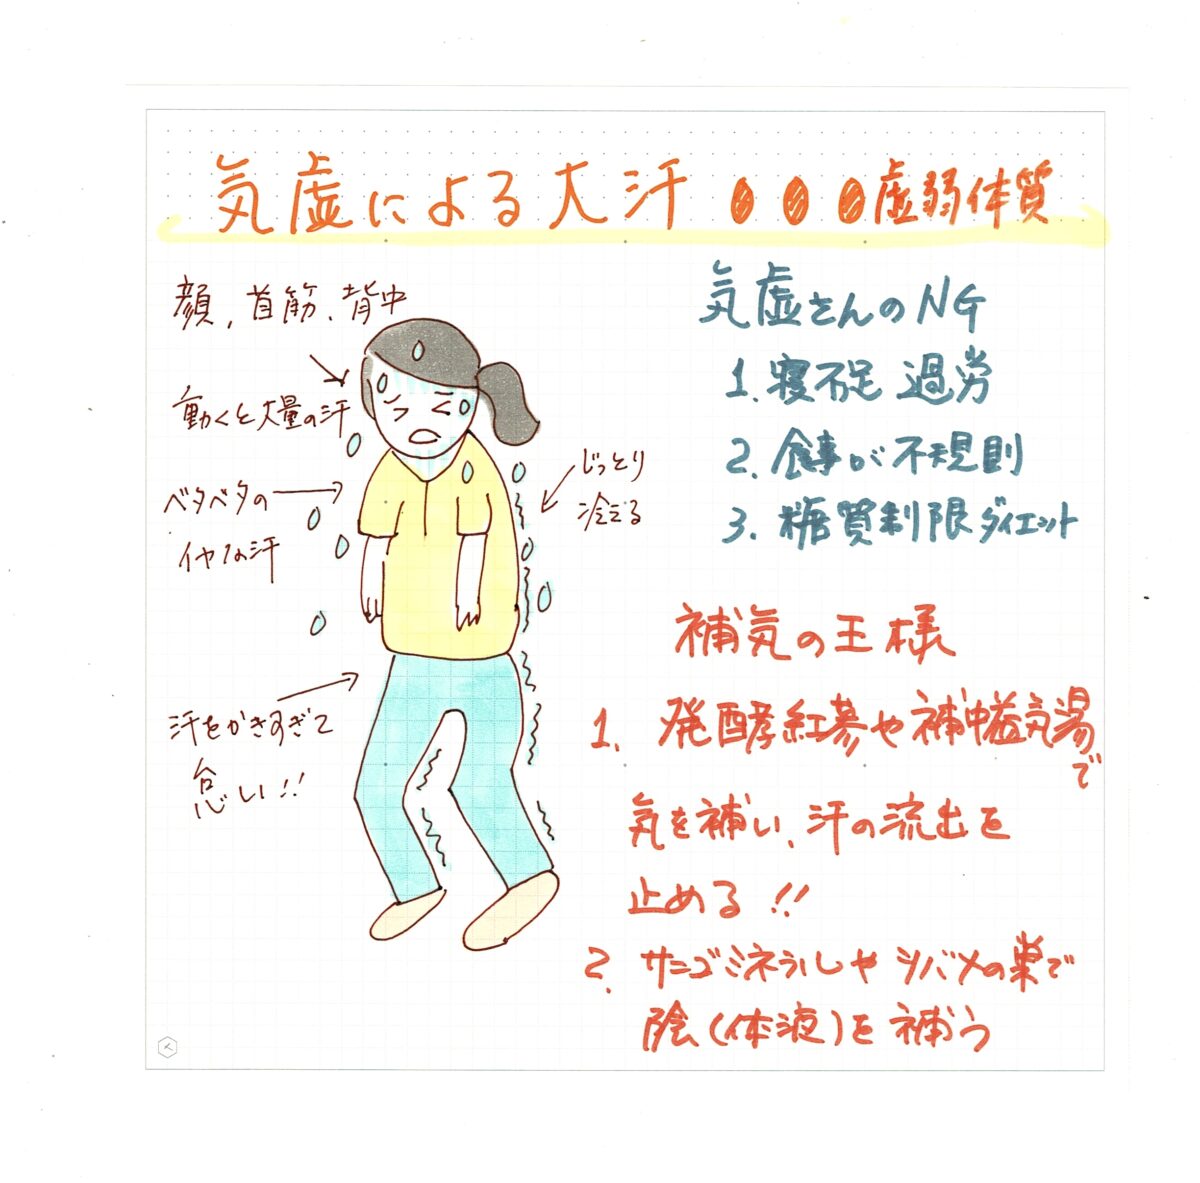 気虚による大汗 ●●●虚弱体質
顔、首筋、背中
動くと大量の汗
ベタベタの
イヤな汗
じっとり
冷える
汗をかきすぎて
怠い!!
気虚さんのNG
1. 寝不足 過労
2. 食事が不規則
3. 糖質制限ダイエット
補気の王様
1. 発酵紅参や補中益気湯で
気を補い、汗の流出を
止める!!
2. サンゴミネラルやツバメの巣で
陰(体液)を補う